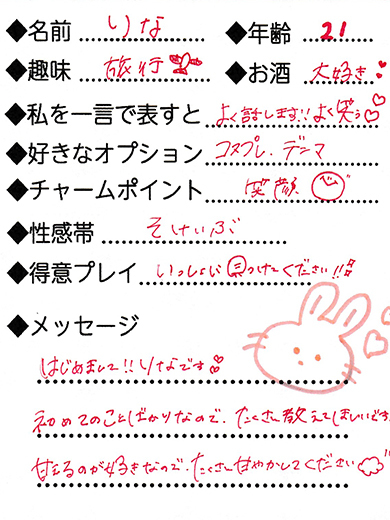 ◆名前 りな ◆年齢 21
◆趣味 旅行 ◆お酒 大好き
◆私を一言で表すと よく話します!!よく笑う
◆好きなオプション コスプレ、デンマ
◆チャームポイント 笑顔
◆性感帯 そけいぶ
◆得意プレイ いっしょに見つけてください!!
◆メッセージ
はじめまして!!りなです
初めてのことばかりなので、たくさん教えてほしいです
甘えるのが好きなので、たくさん甘やかしてください